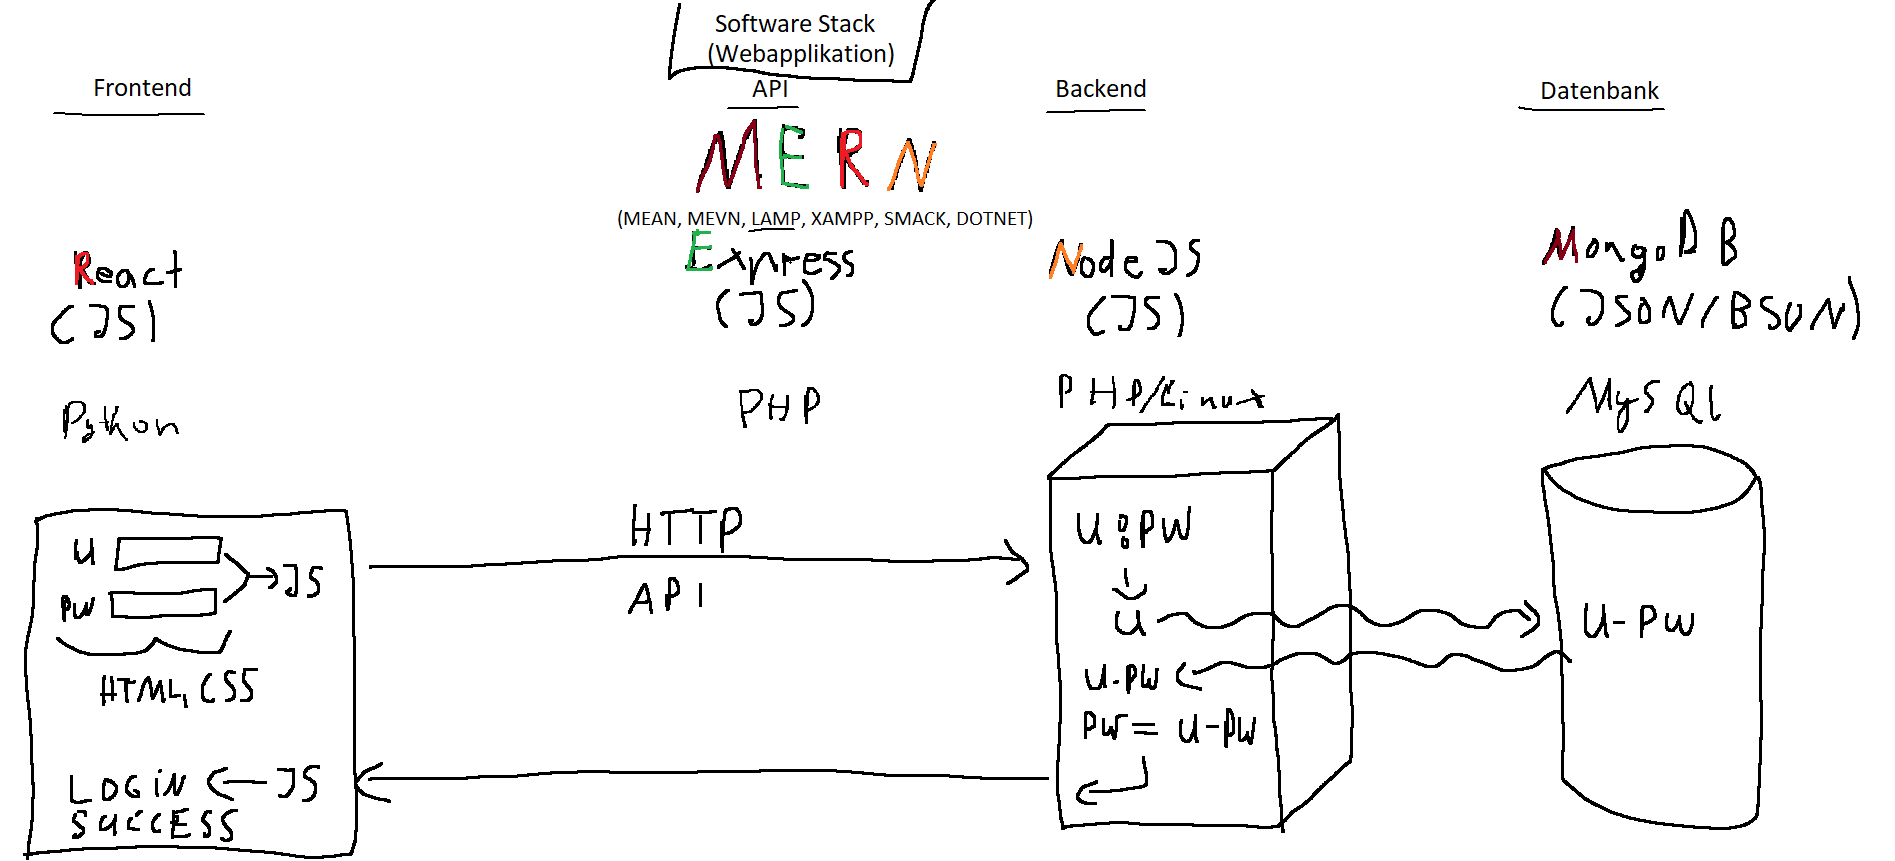 Software Stack
(Webapplikation)
Frontend
API
Backend
Datenbank
MERN
(MEAN, MEVN, LAMP, XAMPP, SMACK, DOTNET)
React
(JS)
Express
(JS)
NodeJS
(JS)
MongoDB
(JSON/BSON)
Python
PHP
PHP/Linux
MySQL
U
PW
JS
HTML, CSS
LOGIN
SUCCESS
JS
HTTP
API
U:PW
U
U-PW
PW = U-PW
U-PW